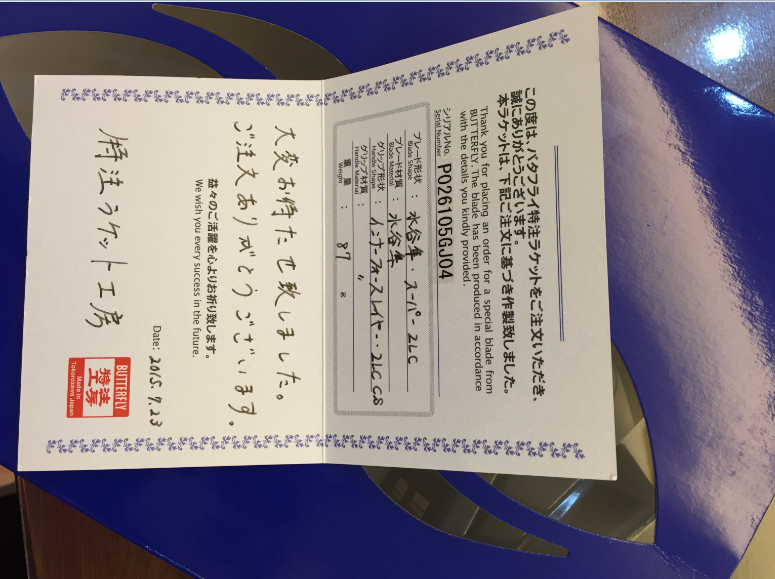 この度は、バタフライ特注ラケットをご注文いただき、
誠にありがとうございます。
本ラケットは、下記ご注文に基づき作製致しました。
Thank you for placing an order for a special blade from
BUTTERFLY. The blade has been produced in accordance
with the details you kindly provided.
シリアルNo. P026105GJ04
Serial Number
ブレード形状 : 水谷隼・スーパーZLC
Blade Shape
ブレード材質 : 水谷隼
Blade Material
グリップ形状 : インナーフォースレイヤー・ZLC CS
Handle Shape
グリップ材質 : 〃
Handle Material
重量 : 87 g
Weight
大変お待たせ致しました。
ご注文ありがとうございます。
益々のご活躍を心よりお祈り致します。
We wish you every success in the future.
Date: 2015.7.23
特注ラケット工房
BUTTERFLY
特注
工房
Made in
Tokorozawa Japan